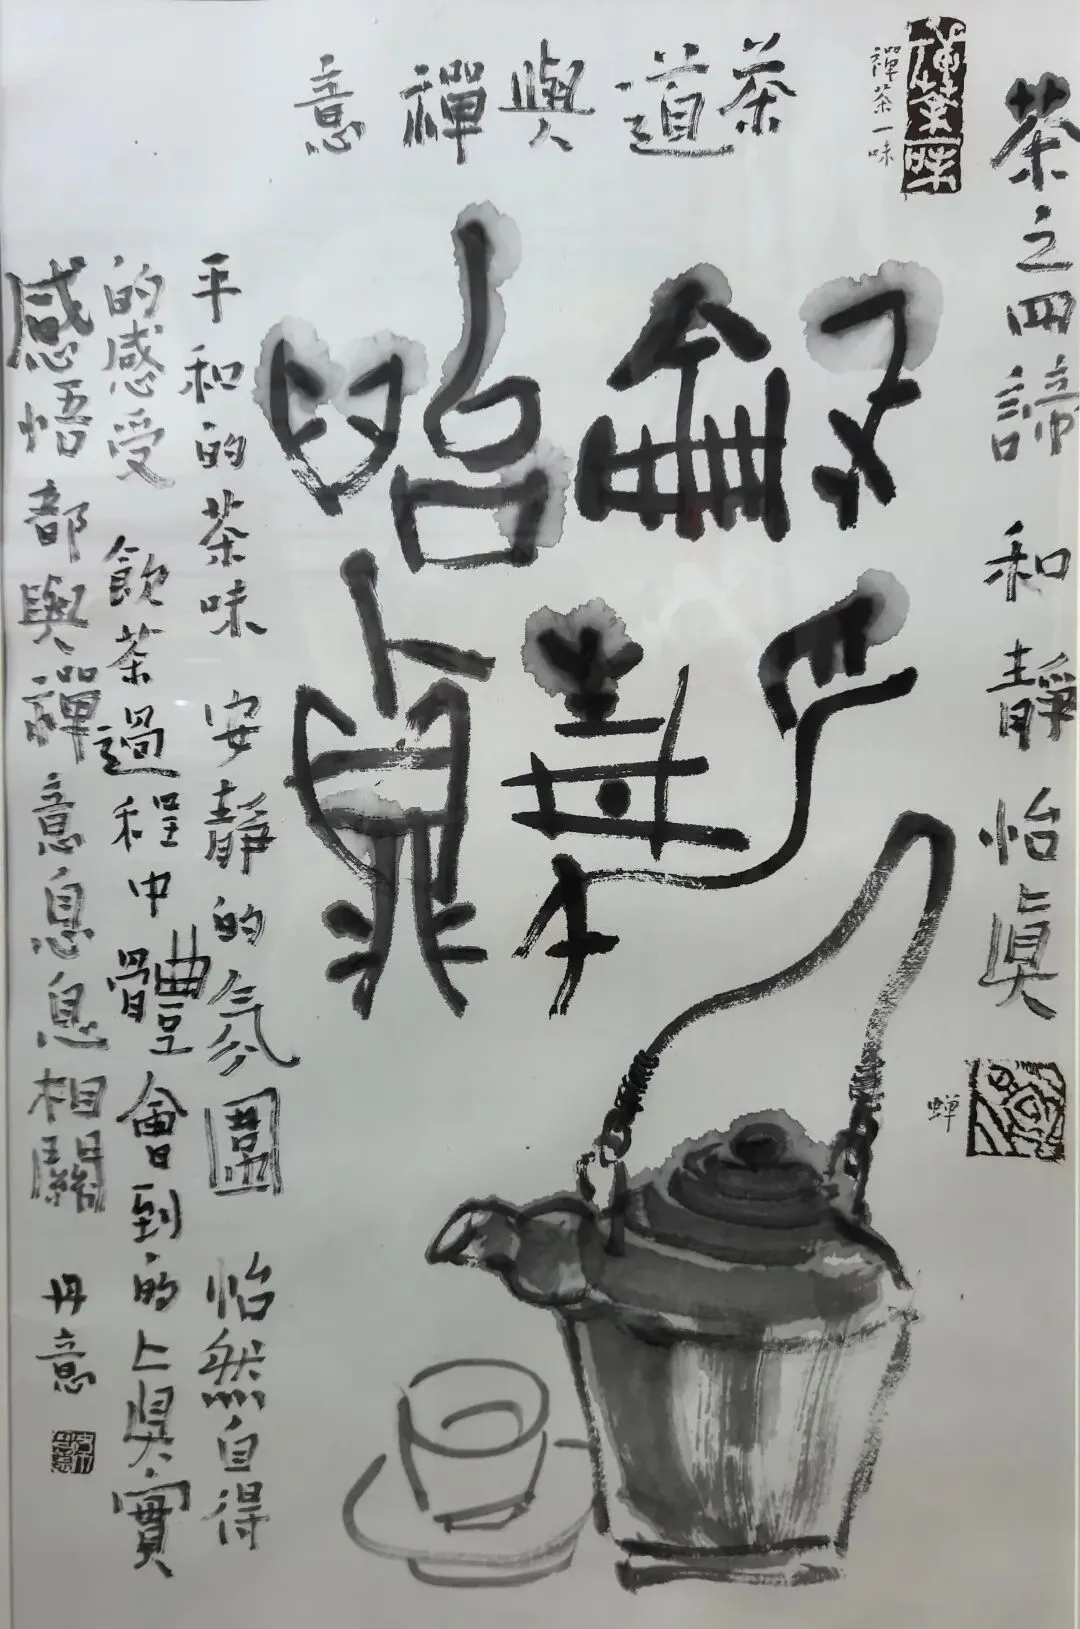 茶之四諦 和 靜 怡 眞
禪茶一味
禪茶一味
蝉
茶道與禪意
龢怡
靜眞
平和的茶味 安靜的氛圍 怡然自得
的感受 飲茶過程中 體會到的上眞實
感悟部與禪意息息相關 丹意